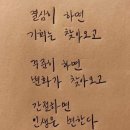 결심이 하면
기회는 찾아오고
걱정이 하면
변화가 찾아오고
간절하면
인생은 변한다